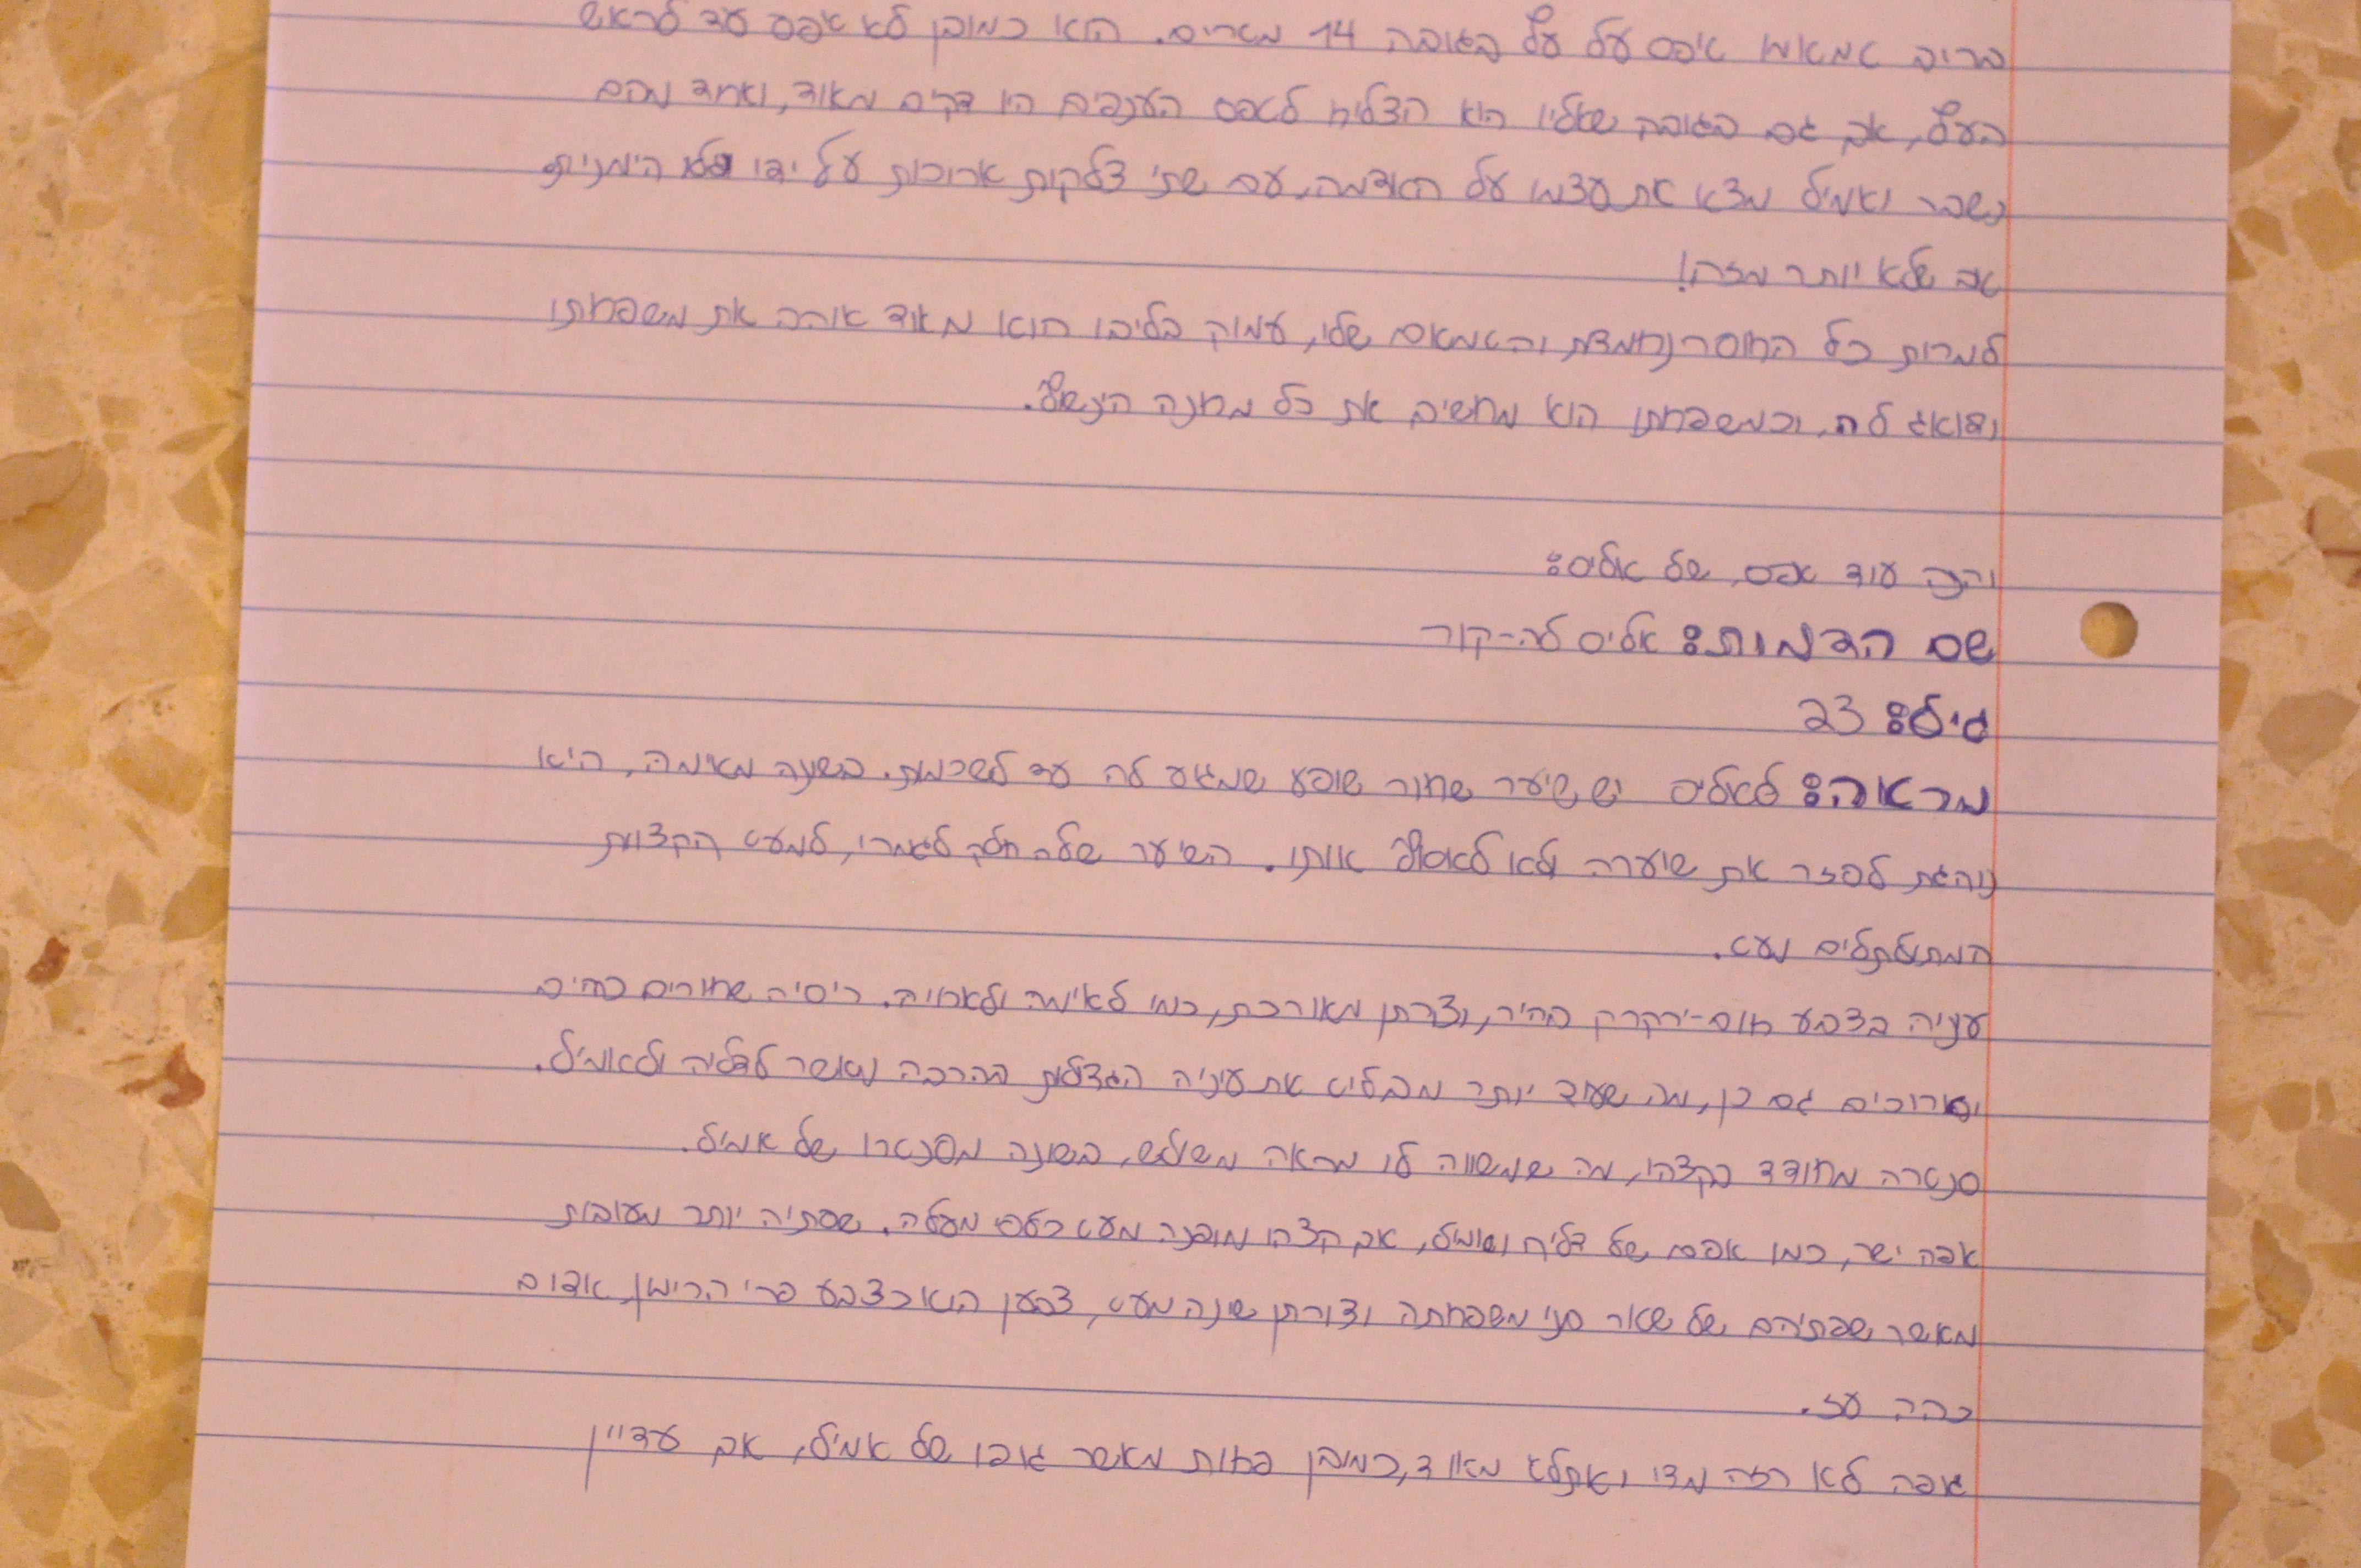 בריב טמאמו טיפס על עץ בגובה 14 מטרים. הוא כמובן לא טיפס עד לראש
העץ, אך גם בגובה שאליו הוא הצליח לטפס הענפים היו דקים מאוד, ואחד מהם
נשבר ואמיל מצא את עצמו על האדמה, עם שתי צלקות ארוכות על ידו הימנית.
טוב שלא יותר מזה!
למרות כל החוסר נחמדות והטמטום שלו, עמוק בליבו הוא מאוד אוהב את משפחתו
ודואג לה, וכמשפחתו הוא מחשיב את כל מחנה הינשוף.
והנה עוד טופס, של אליס:
שם הדמות: אליס לה-קור
גיל: 23
מראה: לאליס יש שיער שחור שופע שמגיע לה עד לשכמות. בשונה מאימה, היא
נוהגת לפזר את שיערה ולא לאסוף אותו. השיער שלה חלק לגמרי, למעט הקצוות
המתולתלים מעט.
עיניה בצבע חום-ירקרק בהיר, וצורתן מאורכת, כמו לאימה ולאחיה. ריסיה שחורים כהים
וארוכים גם כן, מה שעוד יותר מבליט את עיניה הגדולות בהרבה מאשר לדליה ולאמיל.
סנטרה מחודד בקצהו, מה שמשווה לו מראה משולש, בשונה מסנטרו של אמיל.
אפה ישר, כמו אפם של דליה ואמיל, אך קצהו מופנה מעט כלפי מעלה. שפתיה יותר מעובות
מאשר שפתיהם של שאר בני משפחתה וצורתן שונה מעט, צבען הוא כצבע פרי הרימון, אדום
כהה עז.
גופה לא רזה מדי ואתלטי מאוד, כמובן פחות מאשר גופו של אמיל, אך עדיין